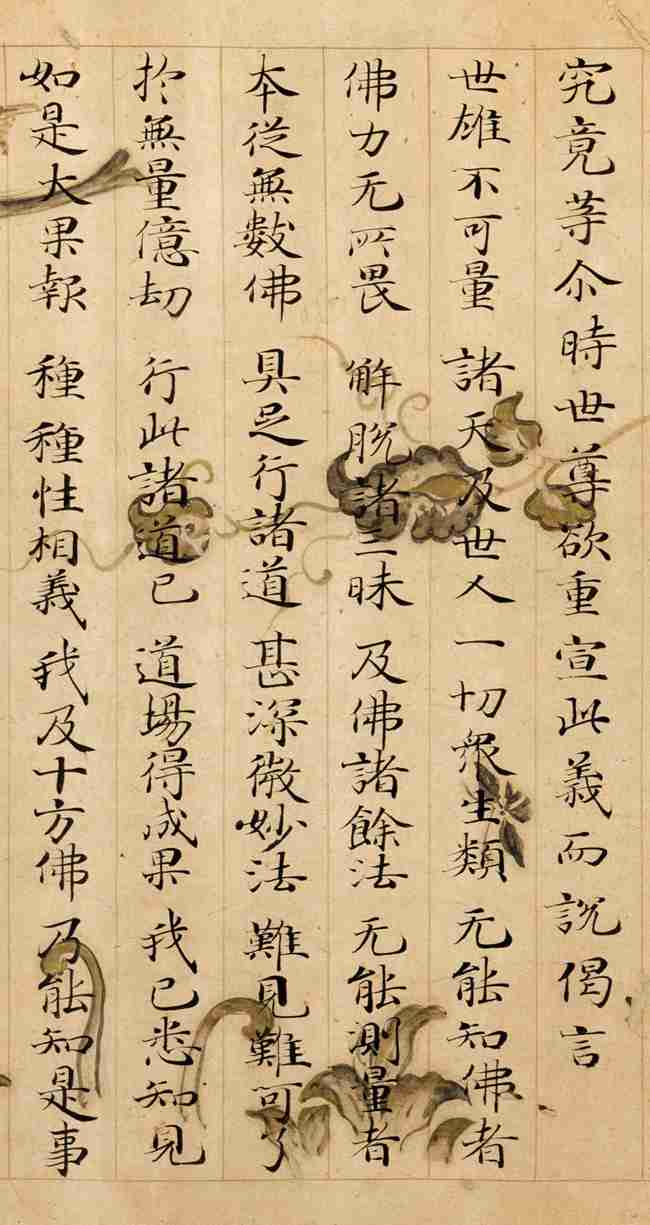 究竟等尒時世尊欲重宣此義而說偈言
世雄不可量 諸天及世人 一切衆生類 无能知佛者
佛力无所畏 解脫諸三昧 及佛諸餘法 无能測量者
本從無數佛 具足行諸道 甚深微妙法 難見難可了
於無量億劫 行此諸道已 道場得成果 我已悉知見
如是大果報 種種性相義 我及十方佛 乃能知是事